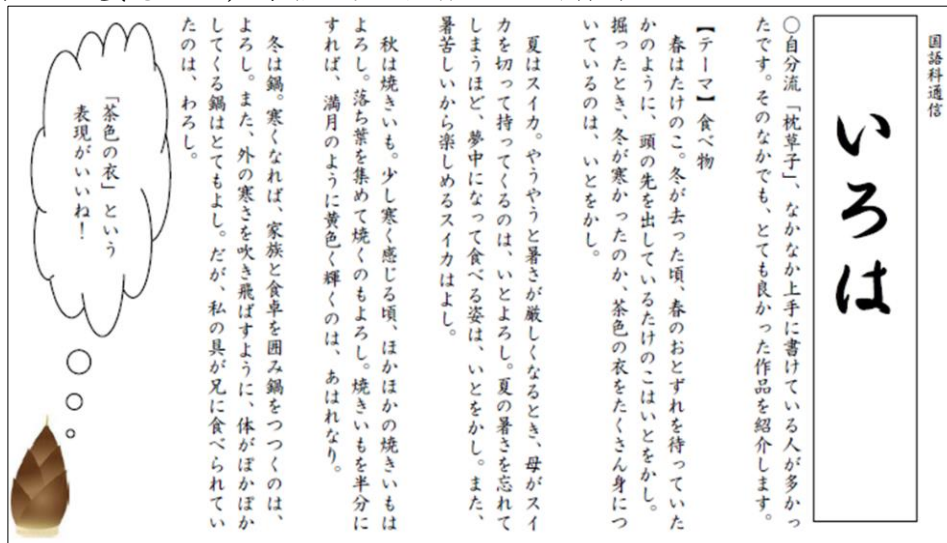 国語科通信
いろは
○自分流「枕草子」、なかなか上手に書けている人が多かっ
たです。そのなかでも、とても良かった作品を紹介します。
【テーマ】食べ物
春はたけのこ。冬が去った頃、春のおとずれを待っていた
かのように、頭の先を出しているたけのこはいとをかし。
掘ったとき、冬が寒かったのか、茶色の衣をたくさん身につ
いているのは、いとをかし。
夏はスイカ。やうやうと暑さが厳しくなるとき、母がスイ
カを切って持ってくるのは、いとよろし。夏の暑さを忘れて
しまうほど、夢中になって食べる姿は、いとをかし。また、
暑苦しいから楽しめるスイカはよし。
秋は焼きいも。少し寒く感じる頃、ほかほかの焼きいもは
よろし。落ち葉を集めて焼くのもよろし。焼きいもを半分に
すれば、満月のように黄色く輝くのは、あはれなり。
冬は鍋。寒くなれば、家族と食卓を囲み鍋をつつくのは、
よろし。また、外の寒さを吹き飛ばすように、体がぽかぽか
してくる鍋はとてもよし。だが、私の具が兄に食べられてい
たのは、わろし。
「茶色の衣」という
表現がいいね!